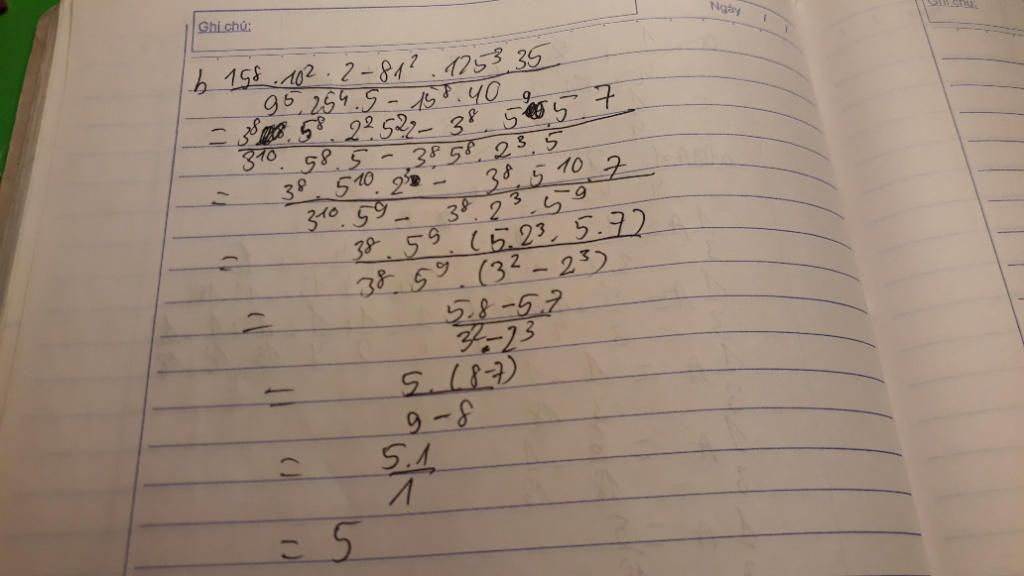 Ghi chú:
Ngày / /
Ghi chú:
b 15⁸ . 10² . 2 - 81² . 125³ . 35
9⁵ . 25⁴ . 5 - 15⁸ . 40
= 3⁸ . 5⁸ . 2² . 5² 2 - 3⁸ . 5⁹ 5 . 7
3¹⁰ . 5⁸ . 5 - 3⁸ 5⁸ . 2³ . 5
= 3⁸ . 5¹⁰ . 2³ - 3⁸ . 5¹⁰ . 7
3¹⁰ . 5⁹ - 3⁸ . 2³ . 5⁹
= 3⁸ . 5⁹ . (5 . 2³ - 5 . 7)
3⁸ . 5⁹ . (3² - 2³)
= 5 . 8 - 5 . 7
3² - 2³
= 5 . (8 - 7)
9 - 8
= 5 . 1
1
= 5